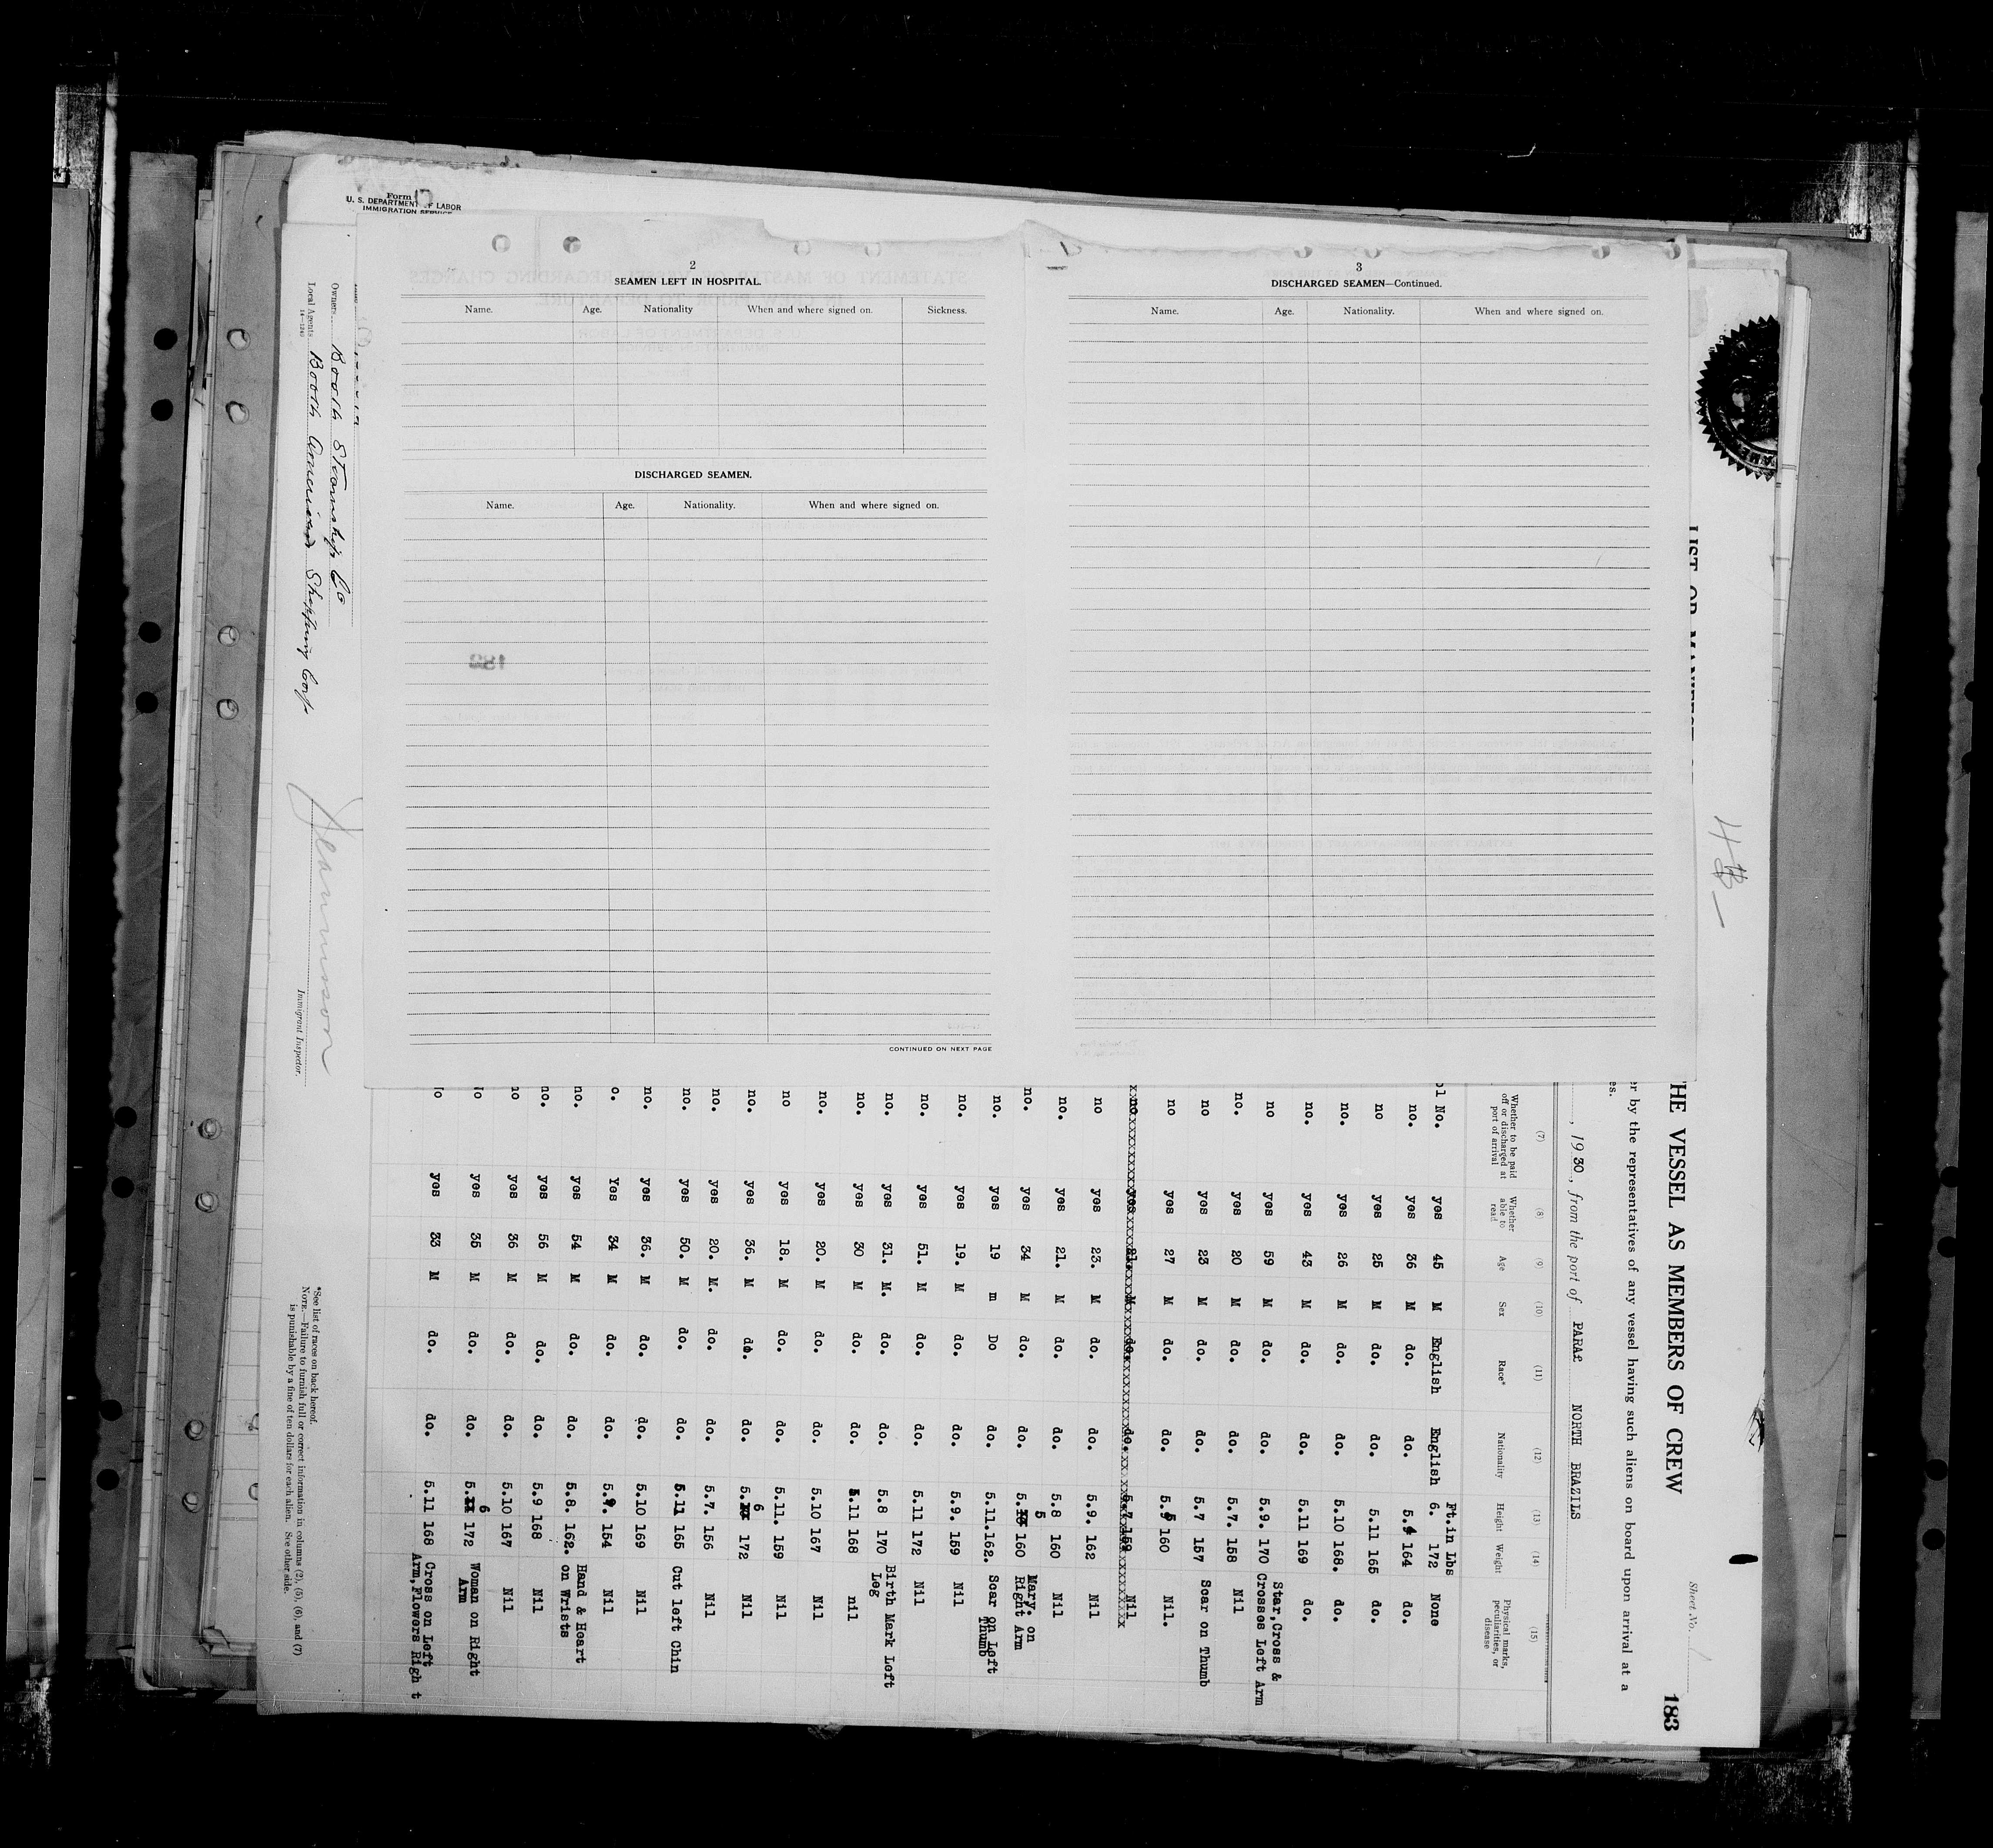 Form
U. S. DEPARTMENT OF LABOR
IMMIGRATION SERVICE
2
SEAMEN LEFT IN HOSPITAL.
Name. Age. Nationality When and where signed on. Sickness.
DISCHARGED SEAMEN.
Name. Age. Nationality. When and where signed on.
CONTINUED ON NEXT PAGE
3
DISCHARGED SEAMEN—Continued.
Name. Age. Nationality. When and where signed on.
183
THE VESSEL AS MEMBERS OF CREW
Sheet No.
er by the representatives of any vessel having such aliens on board upon arrival at a
es.
, 1930, from the port of PARA£ NORTH BRAZILS
(7) (8) (9) (10) (11) (12) (13) (14) (15)
Whether to be paid off or discharged at port of arrival Whether able to read Age Sex Race* Nationality Height Weight Physical marks, peculiarities, or disease
Ft.in Lbs
ol No. yes 45 M English English 6. 172 None
no. yes 36 M do. do. 5.4 164 do.
no yes 25 M do. do. 5.11 165 do.
no. yes 26 M do. do. 5.10 168. do.
no. yes 43 M do. do. 5.11 169 do.
no yes 59 M do. do. 5.9. 170 Star,Cross & Crosses Left Arm
no. yes 20 M do. do. 5.7. 158 Nil
no yes 23 M do. do. 5.7 157 Scar on Thumb
no yes 27 M do. do. 5.5 160 Nil.
no. yes 21. M do. do. 5.7 159 Nil
no yes 23. M do. do. 5.9. 162 Nil
no. yes 21. M do. do. 5.8 160 Nil
no. yes 34 M do. do. 5.5 160 Mary. on Right Arm
no. yes 19 m Do do. 5.11.162. Scar on Left Thumb
no. yes 19. M do. do. 5.9. 159 Nil
no. yes 51. M do. do. 5.11 172 Nil
no. yes 31. M. do. do. 5.8 170 Birth Mark Left Leg
no. yes 30 M Do. do. 5.11 168 nil
no. yes 20. M do. do. 5.10 167 Nil
no yes 18. M do. do. 5.11. 159 Nil
no. yes 36. M do. do. 5.6 172 Nil
no. yes 20. M. do. do. 5.7. 156 Nil
no. yes 50. M do. do. 5.11 165 Cut left Chin
no. yes 36. M do. do. 5.10 169 Nil
o. Yes 34 M do. do. 5.9. 154 Nil
no. yes 54 M do. do. 5.8. 162. Hand & Heart on Wrists
no. yes 56 M do. do. 5.9 168 Nil
no yes 36 M do. do. 5.10 167 Nil
No yes 35 M do. do. 5.6 172 Woman on Right Arm
No yes 33 M do. do. 5.11 168 Cross on Left Arm,Flowers Righ t
Owners Booth Steamship Co
Local Agents Booth American Shipping Corp
14—1240
Jeannisson
Immigrant Inspector.
*See list of races on back hereof.
NOTE.—Failure to furnish full or correct information in columns (2), (5), (6), and (7)
is punishable by a fine of ten dollars for each alien. See other side.